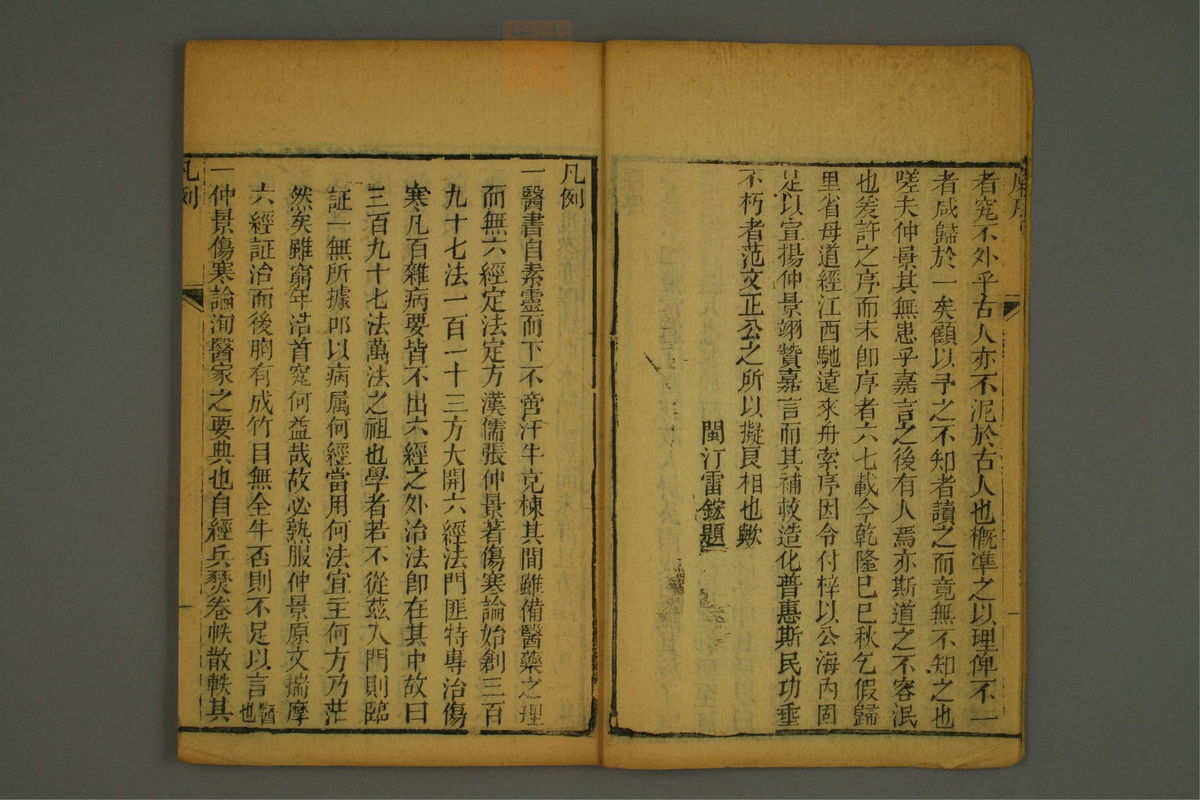 者究不外乎古人亦不泥於古人也概準之以理俾不一
者咸歸於一矣顧以予之不知者讀之而竟無不知之也
嗟夫仲景其無患乎嘉言之後有人焉亦斯道之不容泯
也爰許之序而未卽序者六七載今乾隆己巳秋乞假歸
里省母道經江西馳遠來舟索序因令付梓以公海內固
足以宣揚仲景翊贊嘉言而其補救造化普惠斯民功垂
不朽者范文正公之所以擬良相也歟
閩汀雷鋐題
凡例
一醫書自素靈而下不啻汗牛充棟其間雖備醫藥之理
而無六經定法定方漢儒張仲景著傷寒論始創三百
九十七法一百一十三方大開六經法門匪特專治傷
寒凡百雜病要皆不出六經之外治法卽在其中故曰
三百九十七法萬法之祖也學者若不從茲入門則臨
証一無所據叩以病属何經當用何法宜主何方乃茫
然矣雖窮年浩首究何益哉故必熟服仲景原文揣摩
六經証治而後胸有成竹目無全牛否則不足以言醫也
一仲景傷寒論洵醫家之要典也自經兵燹卷帙散軼其
凡例